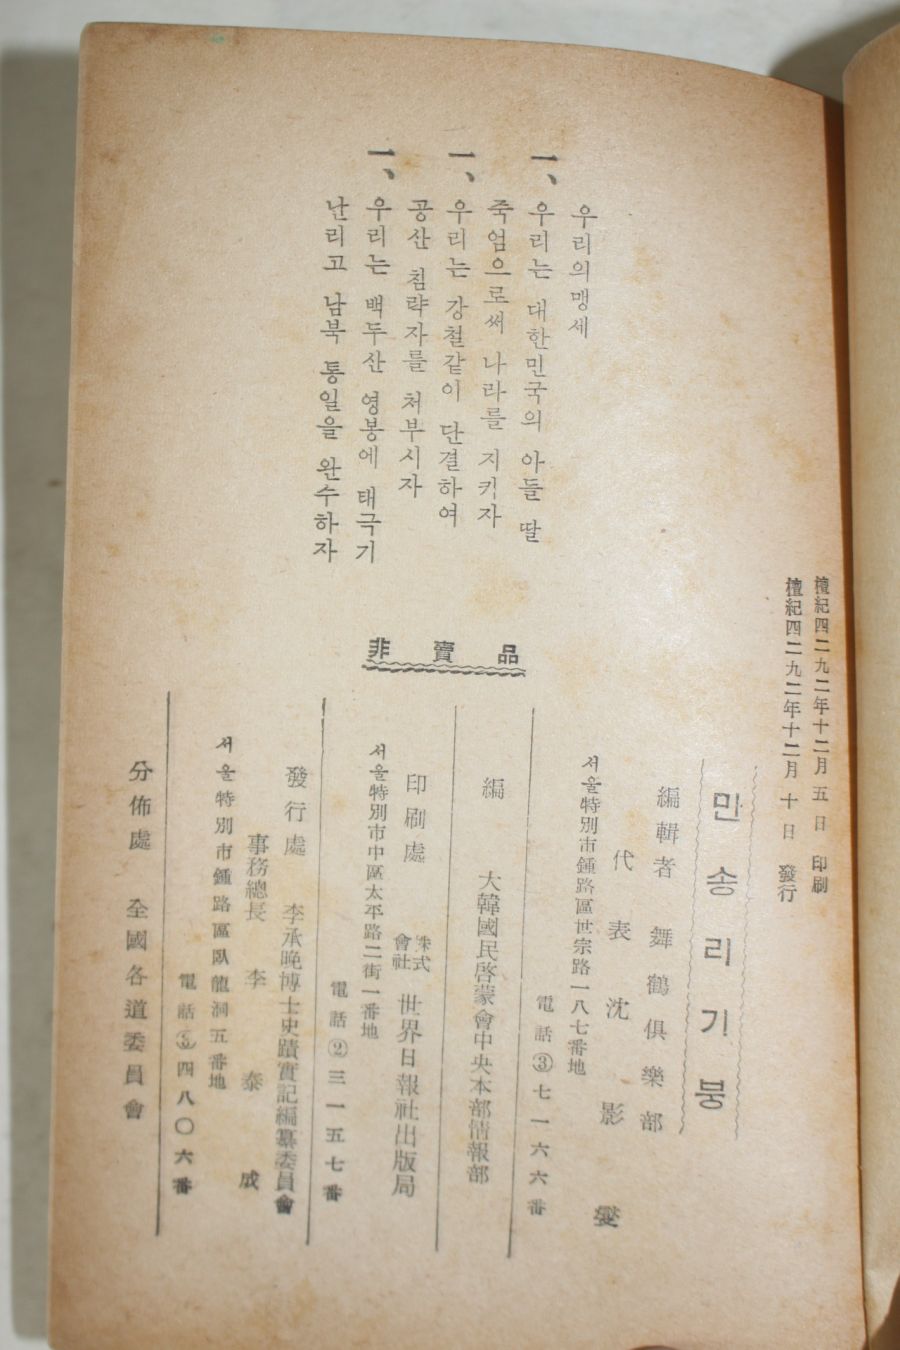 우리의 맹세
一、우리는 대한민국의 아들 딸
죽엄으로써 나라를 지키자
一、우리는 강철같이 단결하여
공산 침략자를 처부시자
一、우리는 백두산 영봉에 태극기
난리고 남북 통일을 완수하자
檀紀四二九二年十二月五日 印刷
檀紀四二九二年十二月十日 發行
非賣品
만송리기붕
編輯者 舞鶴俱樂部
代表 沈影燮
서울特別市鍾路區世宗路一八七番地
電話③七一六六番
編 大韓國民啓蒙會中央本部情報部
印刷處 株式會社 世界日報社出版局
서울特別市中區太平路二街一番地
電話②三一五七番
發行處 李承晩博士史蹟實記編纂委員會
事務總長 李泰成
서울特別市鍾路區臥龍洞五番地
電話 四八〇六番
分佈處 全國各道委員會